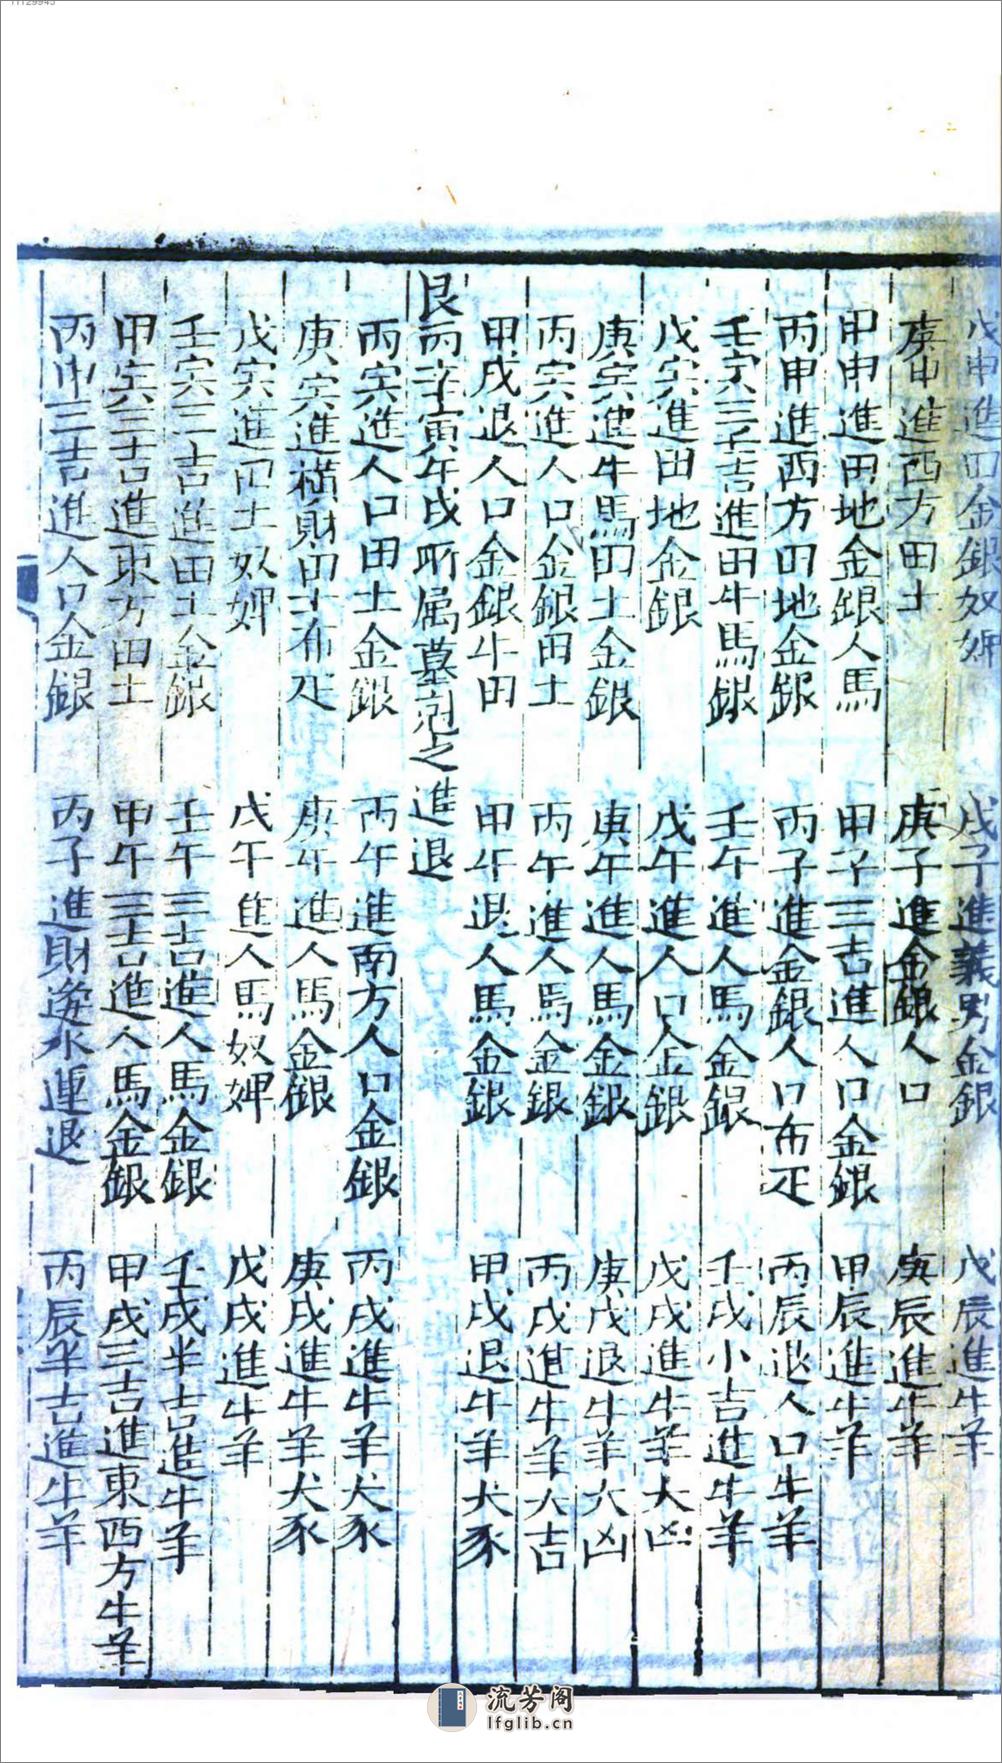 11129945
戊申進田金銀奴婢　戊子進義男金銀　戊辰進牛羊
庚申進西方田土　庚子進金銀人口　庚辰進牛羊
甲申進田地金銀人馬　甲子三吉進人口金銀　甲辰進牛羊
丙申進西方田地金銀　丙子進金銀人口布疋　丙辰退人口牛羊
壬寅三吉進田牛馬銀　壬午進人馬金銀　壬戌小吉進牛羊
戊寅進田地金銀　戊午進人口金銀　戊戌進牛羊大凶
庚寅進牛馬田土金銀　庚午進人馬金銀　庚戌退牛羊大凶
丙寅進人口金銀田土　丙午進人馬金銀　丙戌進牛羊大吉
甲戌退人口金銀牛田　甲午退人馬金銀　甲戌退牛羊犬豕
艮丙辛寅午戌所属墓宛之進退
丙寅進人口田土金銀　丙午進南方人口金銀　丙戌進牛羊犬豕
庚寅進橫財田土布疋　庚午進人馬金銀　庚戌進牛羊犬豕
戊寅進田土奴婢　戊午進人馬奴婢　戊戌進牛羊
壬寅三吉進田土金銀　壬午三吉進人馬金銀　壬戌半吉進牛羊
甲寅三吉進東方田土　甲午三吉進人馬金銀　甲戌三吉進東西方牛羊
丙申三吉進人口金銀　丙子進財逆水連退　丙辰半吉進牛羊
流芳阁
lfglib.cn